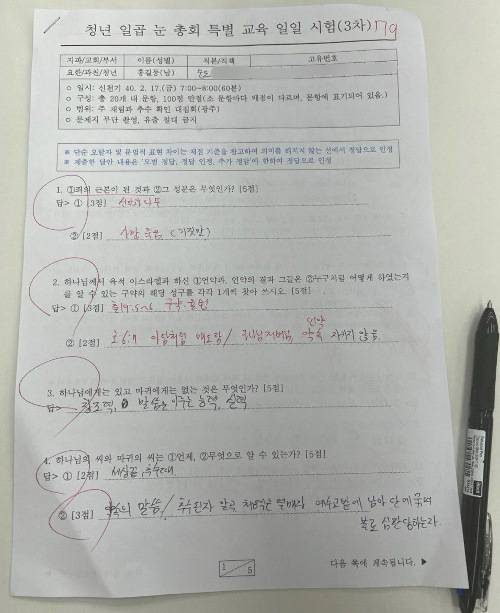 청년 일곱 눈 총회 특별 교육 일일 시험(3차) 179
지파/교회/부서 이름(성별) 직분/직책 고유번호
요한/과천/청년 홍길동(남)
○ 일시: 신천기 40. 2. 17.(금) 7:00-8:00(60분)
○ 구성: 총 20개 내 문항, 100점 만점(소 문항마다 배점이 다르며, 문항에 표기되어 있음.)
○ 범위: 주 재림과 추수 확인 대집회(광주)
○ 문제지 무단 촬영, 유출 절대 금지
※ 단순 오탈자 및 문법적 표현 차이는 채점 기준을 참고하여 의미를 해치지 않는 선에서 정답으로 인정
※ 제출한 답안 내용은 '모범 정답, 정답 인정, 추가 정답'에 한하여 정답으로 인정
1. ①죄의 근본이 된 것과 ②그 성분은 무엇인가? [5점]
답> ① [3점] 선악과나무
② [2점] 사망 죽음 (거짓말)
2. 하나님에게서 육적 이스라엘과 하신 ①언약과, 언약의 결과 그들은 ②누구처럼 어떻게 하였는지
를 알 수 있는 구약의 해당 성구를 각각 1개씩 찾아 쓰시오. [5점]
답> ① [3점] 출19:5-6 구약
언약
② [2점] 호6:7 아담처럼 / 지키지 않음
3. 하나님에게는 있고 마귀에게는 없는 것은 무엇인가? [5점]
답> 창조력, 말씀 이루는 능력, 실력
4. 하나님의 씨와 마귀의 씨는 ①언제, ②무엇으로 알 수 있는가? [5점]
답> ① [2점] 세상끝, 추수때
② [3점] 말씀 / 추수된자 예수교밭에 남아 단에 묶여
불로 심판당하는자
1/5
다음 쪽에 계속됩니다. ▶